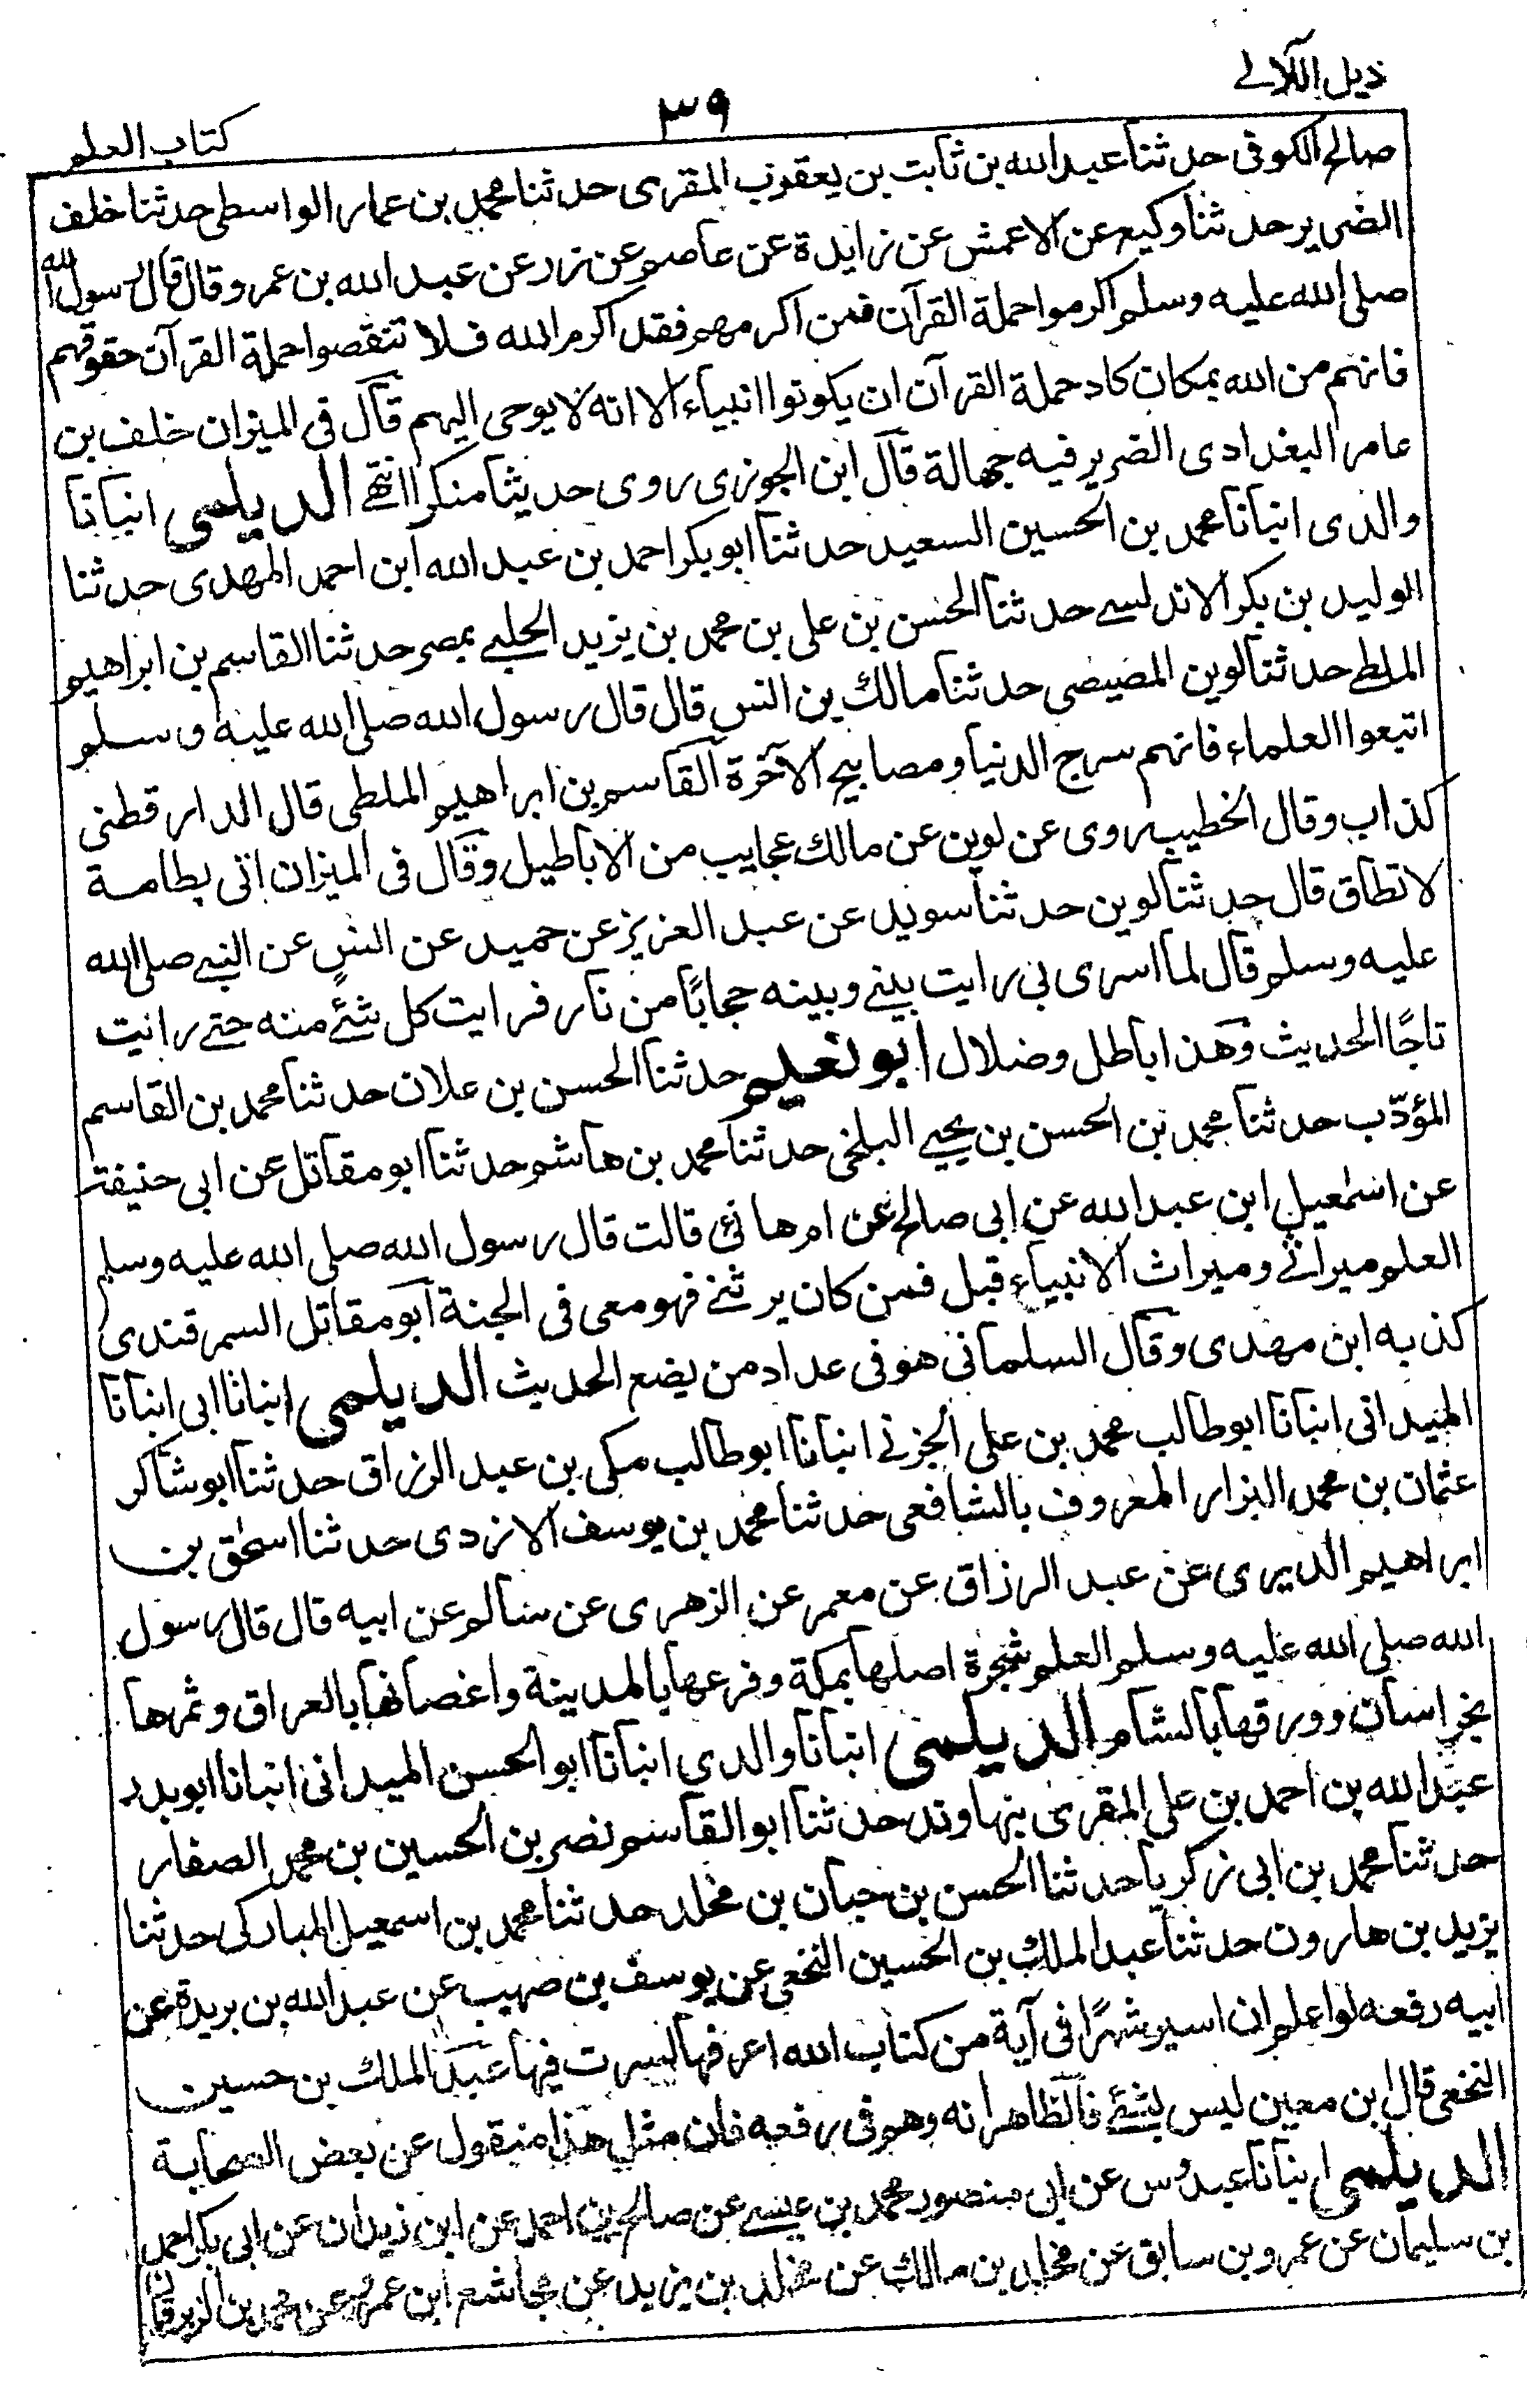 ذيل اللآلے
٣٩
كتاب العلم
صالح الكوفى حدثنا عبد الله بن ثابت بن يعقوب المقرى حدثنا محمد بن عمار الواسطى حدثنا خلف
الضرير حدثنا وكيع عن الاعمش عن زايدة عن عاصم عن زر عن عبد الله بن عمر وقال قال رسول الله
صلى الله عليه وسلم اكرموا حملة القرآن فمن اكرمهم فقد اكرم الله فلا تنقصوا حملة القرآن حقوقهم
فانهم من الله بمكان كاد حملة القرآن ان يكونوا انبياء الا انه لا يوحى اليهم قال فى الميزان خلف بن
عامر البغدادى الضرير فيه جهالة قال ابن الجوزى روى حديثا منكرا انتهے الديلمى انبانا
والدى انبانا محمد بن الحسين السعيد حدثنا ابو بكر احمد بن عبد الله ابن احمد المهدى حدثنا
الوليد بن بكر الاندلسے حدثنا الحسن بن على بن محمد بن يزيد الحلبے بمصر حدثنا القاسم بن ابراهيم
الملطے حدثنا لوين المصيصى حدثنا مالك بن انس قال قال رسول الله صلى الله عليه وسلم
اتبعوا العلماء فانهم سرج الدنيا ومصابيح الآخرة القاسم بن ابراهيم الملطى قال الدارقطنى
كذاب وقال الخطيب روى عن لوين عن مالك عجايب من الاباطيل وقال فى الميزان اتى بطامة
لا تطاق قال حدثنا لوين حدثنا سويد عن عبد العزيز عن حميد عن انس عن النبے صلى الله
عليه وسلم قال لما اسرى بى رايت بينے وبينه حجابًا من نار فرايت كل شئے منه حتے رايت
تاجًا الحديث وهذا باطل وضلال ابو نعيم حدثنا الحسن بن علان حدثنا محمد بن القاسم
المؤدّب حدثنا محمد بن الحسن بن يحيے البلخى حدثنا محمد بن هاشم حدثنا ابو مقاتل عن ابى حنيفة
عن اسمٰعيل ابن عبد الله عن ابى صالح عن ام هانئ قالت قال رسول الله صلى الله عليه وسلم
العلم ميراثے وميراث الانبياء قبل فمن كان يرثنے فهو معى فى الجنة ابو مقاتل السمرقندى
كذبه ابن مهدى وقال السلمانى هو فى عداد من يضع الحديث الديلمى انبانا ابى انبانا
الميدانى انبانا ابو طالب محمد بن على الجزنے انبانا ابو طالب مكى بن عبد الرزاق حدثنا ابو شاكر
عثمان بن محمد البزار المعروف بالشافعى حدثنا محمد بن يوسف الازدى حدثنا اسحٰق بن
ابراهيم الديرى عن عبد الرزاق عن معمر عن الزهرى عن سالم عن ابيه قال قال رسول
الله صلى الله عليه وسلم العلم شجرة اصلها بمكة وفرعها بالمدينة واغصانها بالعراق وثمرها
بخراسان وورقها بالشام الديلمى انبانا والدى انبانا ابو الحسن الميدانى انبانا ابو بدر
عبد الله بن احمد بن على المقرى بنهاوند حدثنا ابو القاسم نصر بن الحسين بن محمد الصفار
حدثنا محمد بن ابى زكريا حدثنا الحسن بن حبان بن مخلد حدثنا محمد بن اسمعيل المباركى حدثنا
يزيد بن هارون حدثنا عبد الملك بن الحسين النخعى عن يوسف بن صهيب عن عبد الله بن بريدة عن
ابيه رفعه لو اعلم ان اسير شهرًا فى آية من كتاب الله اعرفها لسرت فيها عبد الملك بن حسين
النخعى قال ابن معين ليس بشئے فالظاهر انه وهم فى رفعه فان مثل هذا منقول عن بعض الصحابة
الديلمى انبانا عبدوس عن ابى منصور محمد بن عيسے عن صالح بن احمد عن ابن زيدان عن ابى بكر احمد
بن سليمان عن عمرو بن سابق عن مخلد بن مالك عن مخلد بن يزيد عن مجاشع ابن عمرو عن محمد بن الزبرقان